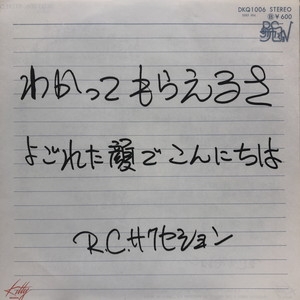 DKQ1006 STEREO
¥600
わかってもらえるさ
よごれた顔でこんにちは
R.C.サクセション
Kitty